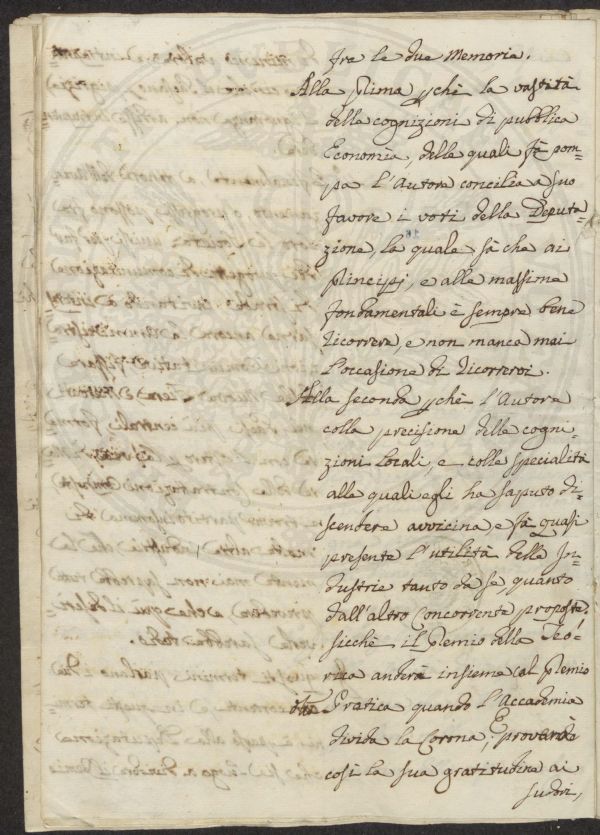 fra le due Memorie.
Alla Prima pchè la vastità
della cognizioni di pubblica
Economia, delle quali fà pom-
pa l'Autore concilia a suo
favore i voti della Deputa-
zione, la quale sà che ai
principj, e alle massime
fondamentali è sempre bene
ricorrere, e non manca mai
l'occasione di ricorrervi.
Alla seconda pchè l'Autore
colla precisione delle cogni-
zioni locali, e colle specialità
alle quali egli ha saputo di-
scendere avvicina, e fà quasi
presente l'utilità delle In-
dustrie tanto da se, quanto
dall'altro Concorrente proposte.
sicchè il Premio della Teó-
rica anderà insieme col Premio
Pratica quando l'Accademia
divida la Corona, E proverà
così la sua gratitudine ai
sudori,